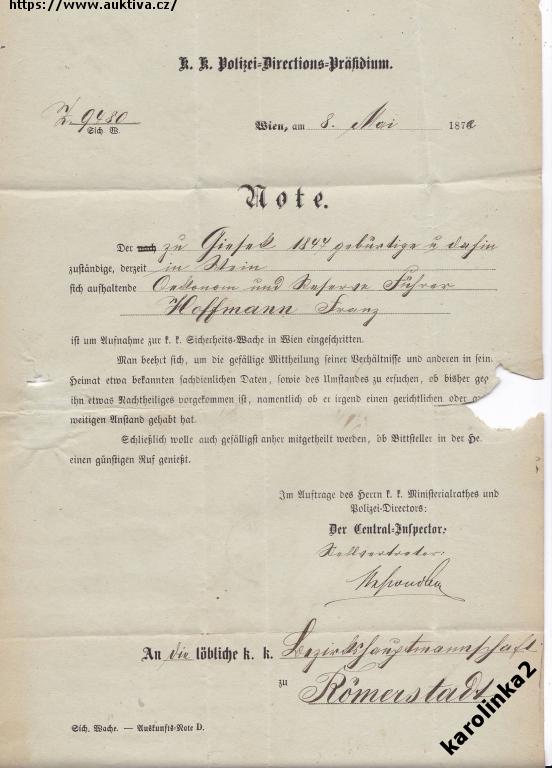 https://www.auktiva.cz/
K. K. Polizei-Directions-Präsidium.
Z. 9480
Sich. W.
Wien, am 8. Mai 1872
Note.
Der nach zu Giesek 1847 gebürtige u dahin
zuständige, derzeit in Wien
sich aufhaltende Oekonom und Reserve Führer
Hoffmann Franz
ist um Aufnahme zur k. k. Sicherheits-Wache in Wien eingeschritten.
Man beehrt sich, um die gefällige Mittheilung seiner Verhältnisse und anderen in sein
Heimat etwa bekannten sachdienlichen Daten, sowie des Umstandes zu ersuchen, ob bisher geg
ihn etwas Nachtheiliges vorgekommen ist, namentlich ob er irgend einen gerichtlichen oder
weitigen Anstand gehabt hat.
Schließlich wolle auch gefälligst anher mitgetheilt werden, ob Bittsteller in der He
einen günstigen Ruf genießt.
Im Auftrage des Herrn k. k. Ministerialrathes und
Polizei-Directors:
Der Central-Inspector:
Stellvertreter:
An die löbliche k. k. Bezirkshauptmannschaft
zu Römerstadt
Sich. Wache. — Auskunfts-Note D.
karolinka2